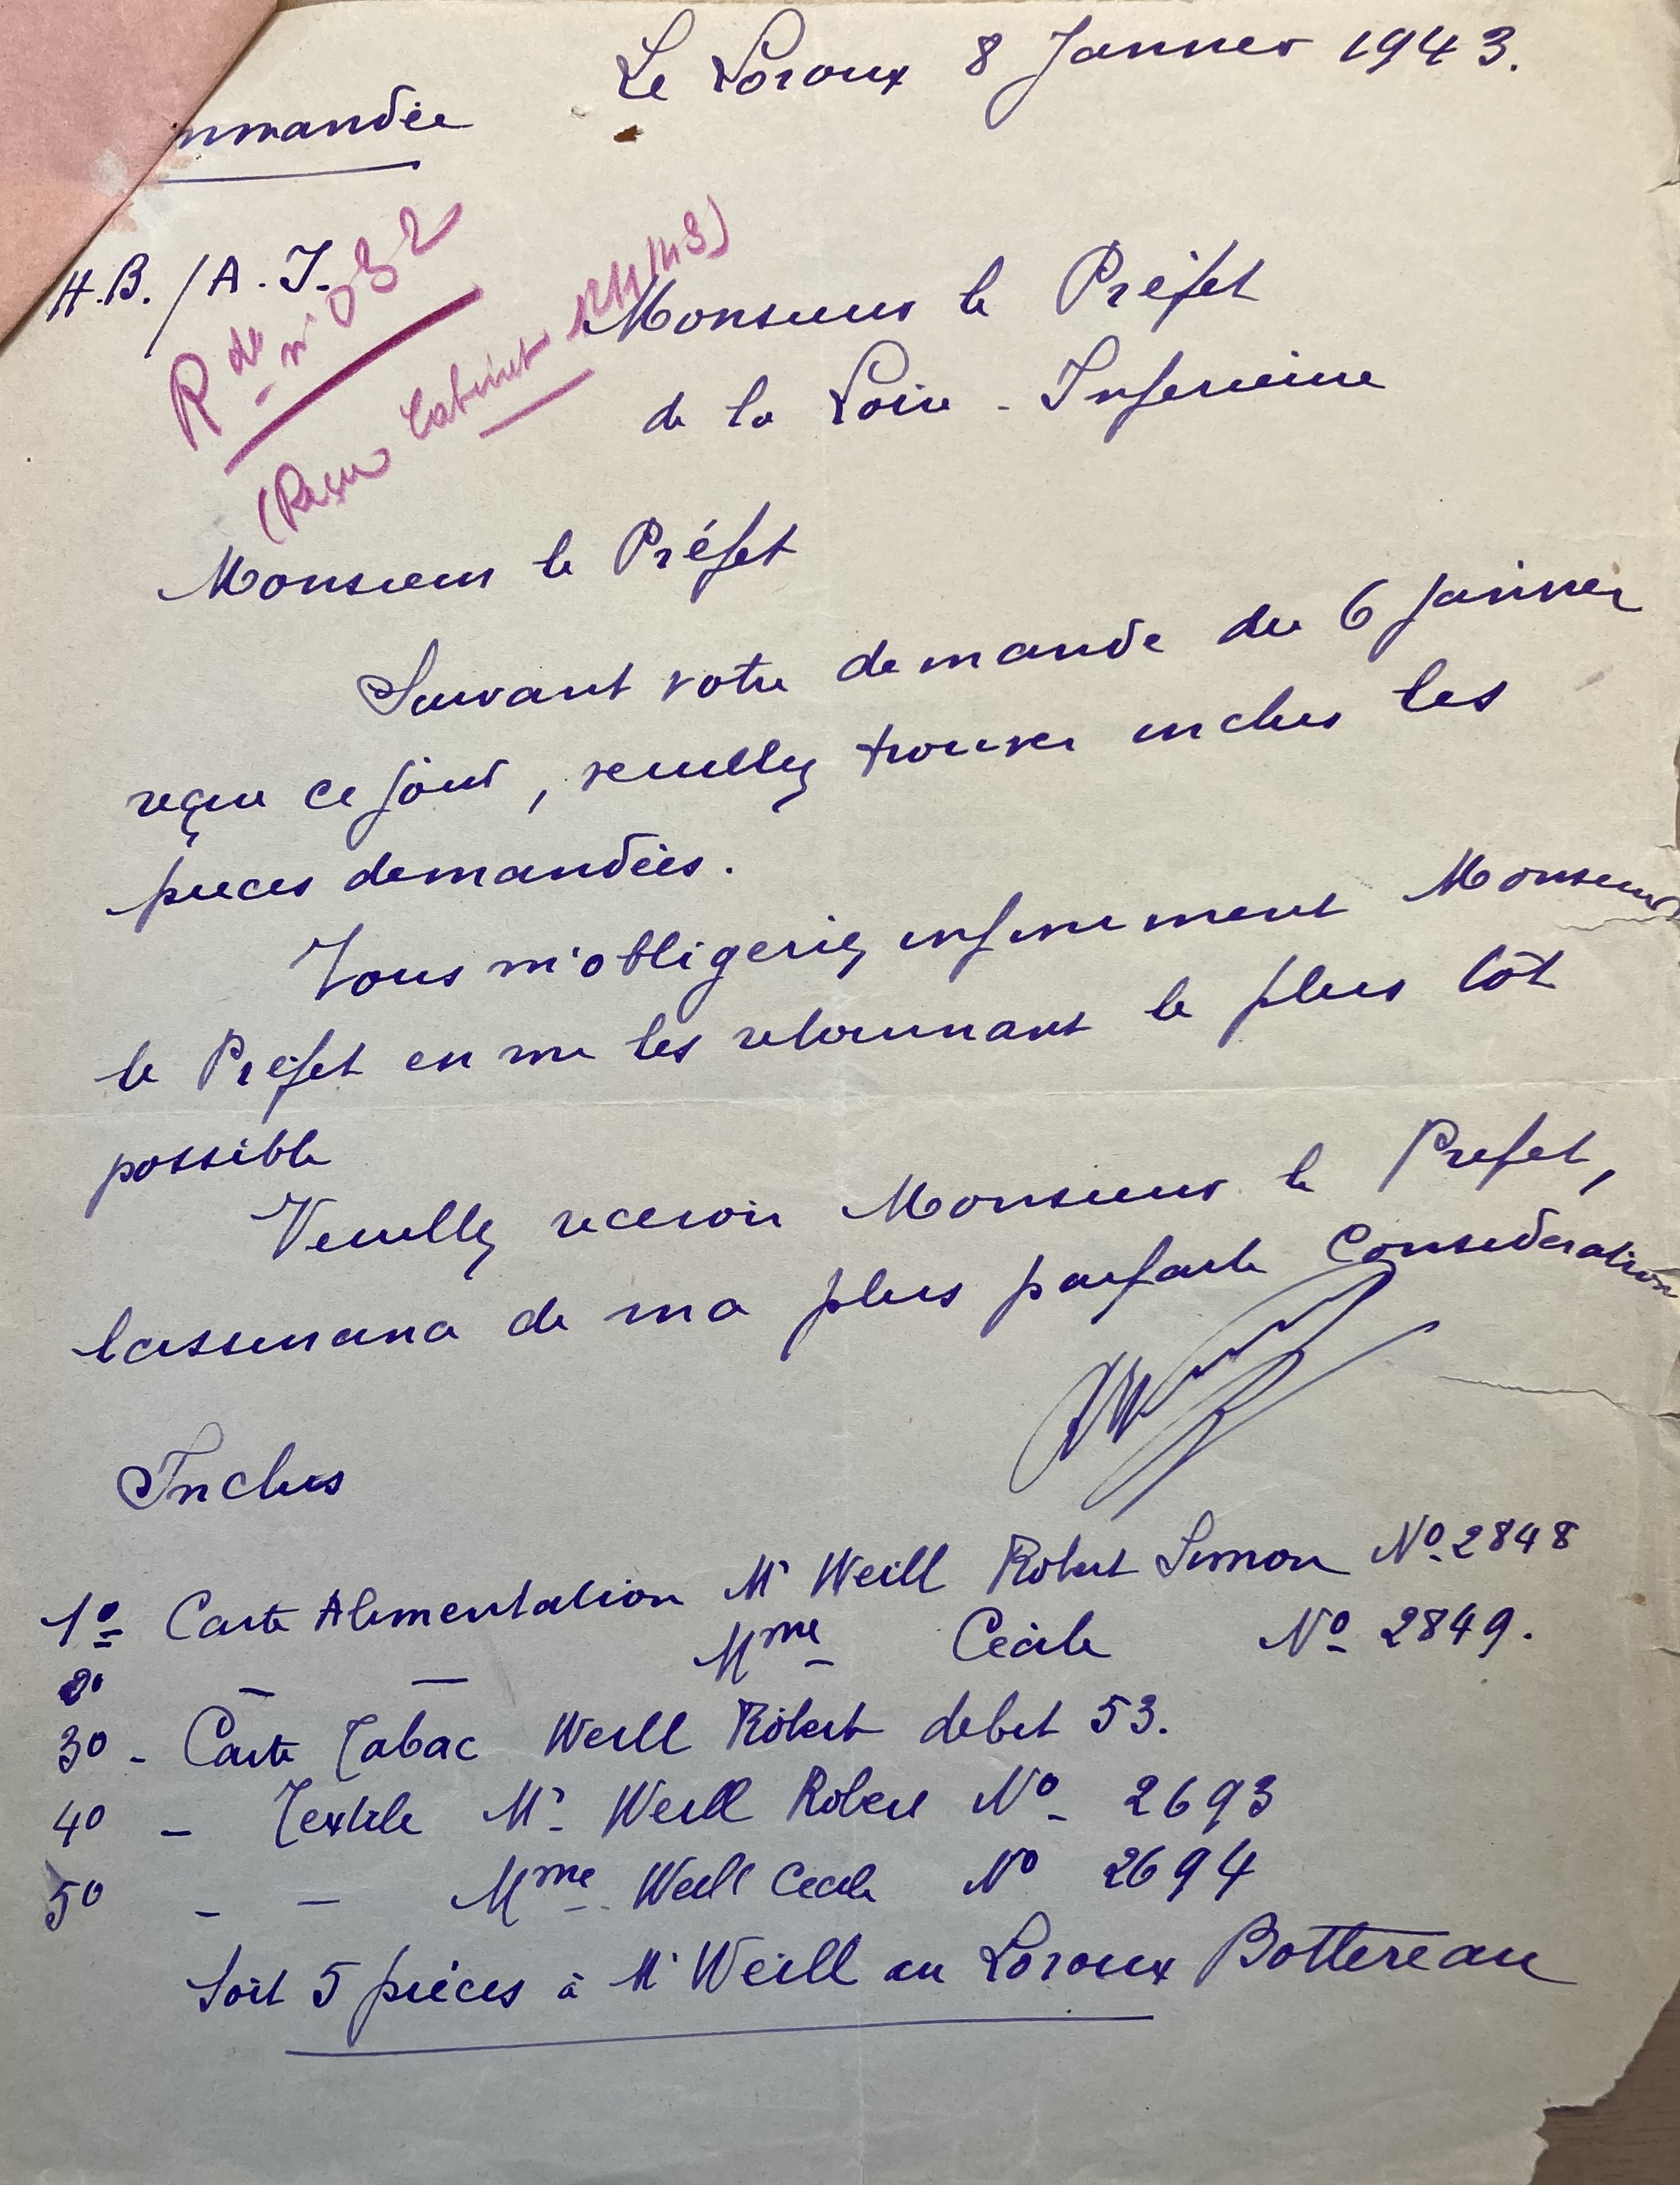 Le Loroux 8 Janvier 1943.
mmandée
H.B. / A. J.
Rde n° 032
(Reçu Cabinet 12/1/43)
Monsieur le Préfet
de la Loire - Inferieure
Monsieur le Préfet
Suivant votre demande du 6 Janvier
reçue ce jour, veuillez trouver inclus les
pieces demandées.
Vous m'obligeriez infiniment Monsieur
le Préfet en me les retournant le plus tôt
possible
Veuillez recevoir Monsieur le Prefet,
de ma plus parfaite Consideration
Inclus
1º Carte Alimentation Mr Weill Robert Simon Nº 2848
2º — — Mme Cécile Nº 2849.
3º - Carte Tabac Weill Robert debit 53.
4º - Textile Mr Weill Robert Nº 2693
5º - — Mme Weill Cecile Nº 2694
Soit 5 pièces à Mr Weill au Loroux Bottereau